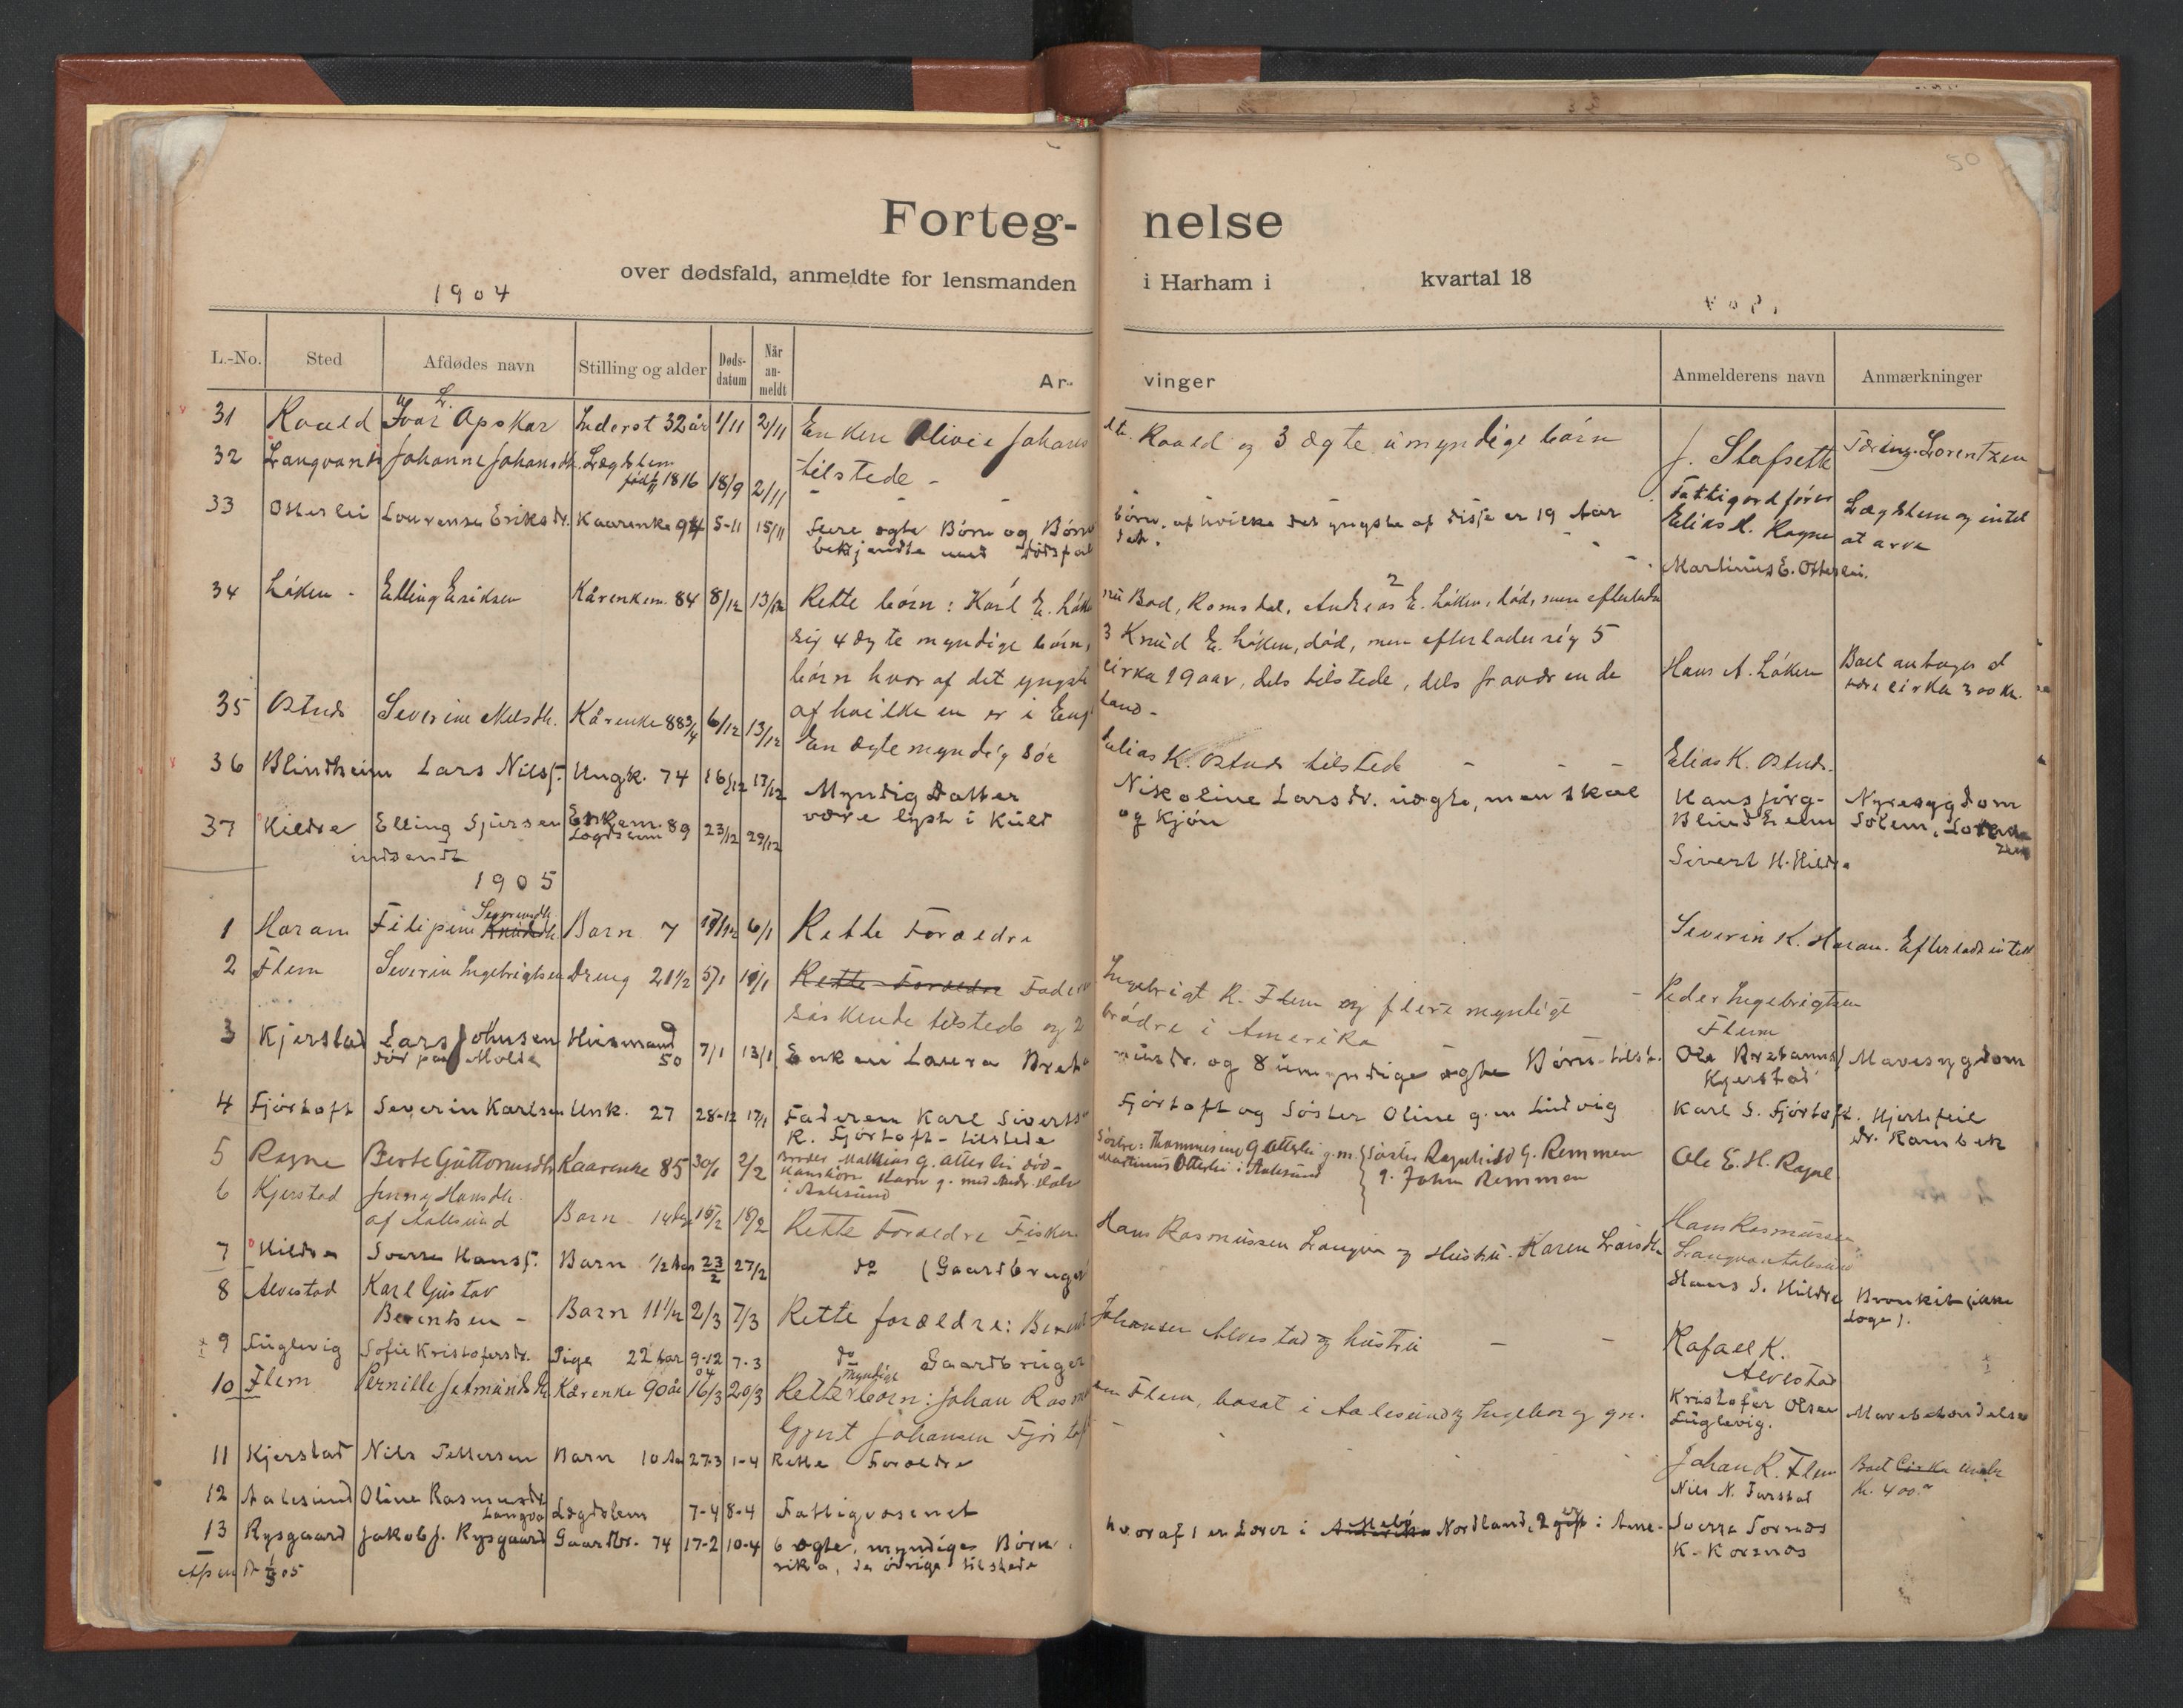 50
Forteg- nelse
over dødsfald, anmeldte for lensmanden i Harham i kvartal 18
1904
L.-No. Sted Afdødes navn Stilling og alder Døds-datum Når an-meldt Ar- vinger Anmelderens navn Anmærkninger
31 Roald Ivar L. Opskar Inderst 32 år 1/11 2/11 Enken Olivie Johans dtr. Roald og 3 ægte umyndige børn J. Slafsette Tæring. Lorentzen
32 Langvand Johanne Johansdt. Lægdslem
født 1816 18/9 2/11 tilstede - Fattigordfører
33 Otterlei Lovrense Eriksdr. Kaarenke 94 5-11 15/11 flere ægte Børn og Børne børn, af hvilke det yngste af disse er 19 Aar Elias K. Rogne Lægdslem og intet at arve
bekjendte med dødsfaldet. Martinus E. Otterlei.
34 Løken - Elling Eriksen Kårenkem. 84 8/12 13/12 Rette børn: Karl E. Løken Bod, Romsdal, 2 Andreas E. Løken, død, men efterlader
sig 4 ægte myndige børn, 3 Knud E. Løken, død, men efterlader sig 5
børn hvoraf det yngste cirka 19 aar, dels tilstede, dels fraværende Hans A. Løken Boet antages at
være cirka 300 kr.
af hvilke en er i England -
35 Ostnes Severine Nilsdt. Kårenke 88 3/4 6/12 13/12 En ægte myndig søn Elias K. Ostnes tilsted - - - Elias K. Ostnes.
36 Blindheim Lars Nilss. Ungk. 74 16/12 17/12 Myndig Datter Nikoline Larsdr. uægte, men skal Hans Jørg- Nyresygdom
være lyst i Kuld og Kjøn Blindheim Solem,
37 Kildre Elling Sjursen Enkem. Lægdslem 89 23/12 29/12 Sivert H. Hildre
indsendt
1905
1 Haram Filipine Knudsdt. Severinsdt. Barn 7 6/1 Rette Forældre Severin K. Haram. Efterlod intet
2 Flem Severin Ingebrigtsen Dreng 21 1/2 5/1 10/1 Rette Forældre Faderen Ingebrigt R. Flem og flere myndige - Peder Ingebrigtsen
søskende tilstede og 2 brødre i Amerika - Flem
3 Kjerstad Lars Johnsen Husmand 7/1 13/1 Enken Laura og 8 umyndige ægte Børn tilst. Ole Mavesygdom
dør paa Molde 50 Kjerstad
4 Fjørtoft Severin Karlsen Unk. 27 28-12 17/1 Faderen Karl Siverts Fjørtoft og Søster Oline g.m. Ludvig Karl S. Fjørtoft. Hjertefeil
K. Fjørtoft - tilstede Dr. Rambek
5 Rogne Berte Guttormsdt. Kaarenke 85 30/1 2/2 Broder Mathias G. Otterlei død - Søstre: Thommesine G. Otterlei g.m. Søster Ragnhild G. Remmen Ole E. H. Rogne
Martinus Otterlei i Aalesund g. John Remmen
i Aalesund
6 Kjerstad Jenny Hansdt. Barn 14 dag 18/2 Rette Forældre Fisker Hans Rasmussen Langva og Hustru - Karen Larsdt. Hans Rasmussen
af Aalesund Langva. Aalesund
7 Hildre Sverre Hanss. Barn 1/2 23/2 27/2 do (Gaardbruger Hans S. Hildre Bronkit (ikke
Læge).
8 Alvestad Karl Gustav
Berentsen - Barn 11 2/3 7/3 Rette forældre: Berent Johansen Alvestad og hustru - - Rafael K.
Alvestad
9 Fuglevig Sofie Kristofersdr. Pige 22 Aar 9-12 04 7-3 do Gaardbruger Kristofer Olsen
Fuglevig.
10 Flem Pernille Jetmundsdt. Kårenke 90 år 16/3 20/3 Rette myndige børn: Johan Rasmussen Flem, bosat i Aalesund og Ingeborg gm. Johan R. Flem Boet Cirka
Johansen Fjørtoft - kr. 400.
11 Kjerstad Nils Pettersen Barn 10 27-3 1-4 Rette Forældre Nils N. Farstad
12 Aalesund Oline Rasmusdt. Langva Lægdslem 7-4 8-4 Fattigvæsenet
13 Rysgaard Jakob J. Rysgaard Gaardbr. 74 17-2 10-4 6 ægte, myndige Børn, hvoraf 1 er Lærer i Nordland, 2 i Ame- Sverre
rika, de øvrige tilstede K. Korsnes